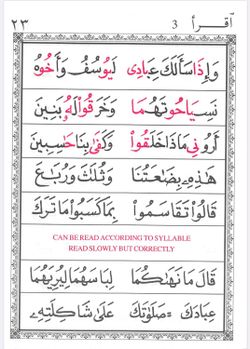 ٢٣ 3 أقرأ
وَإِذَا سَأَلَكَ عِبَادِى لَيُوسُفُ وَأَخُوهُ
نَسِيَا حُوتَهُمَا وَخَرَقُوا لَهُ بَنِينَ
أَرُونِى مَاذَا خَلَقُوا وَكَفَى بِنَا حَاسِبِينَ
هَٰذِهِ بِضَاعَتُنَا وَثُلَٰثَ وَرُبَاعَ
قَالُوا تَقَاسَمُوا بِمَا كَسَبُوا مَا تَرَكَ
CAN BE READ ACCORDING TO SYLLABLE
READ SLOWLY BUT CORRECTLY
قَالَ مَا نَهَاكُمَا لِبَاسَهُمَا لِيُرِيَهُمَا
عِبَادَكَ = صَلَوٰتَكَ عَلَىٰ شَاكِلَتِهِ